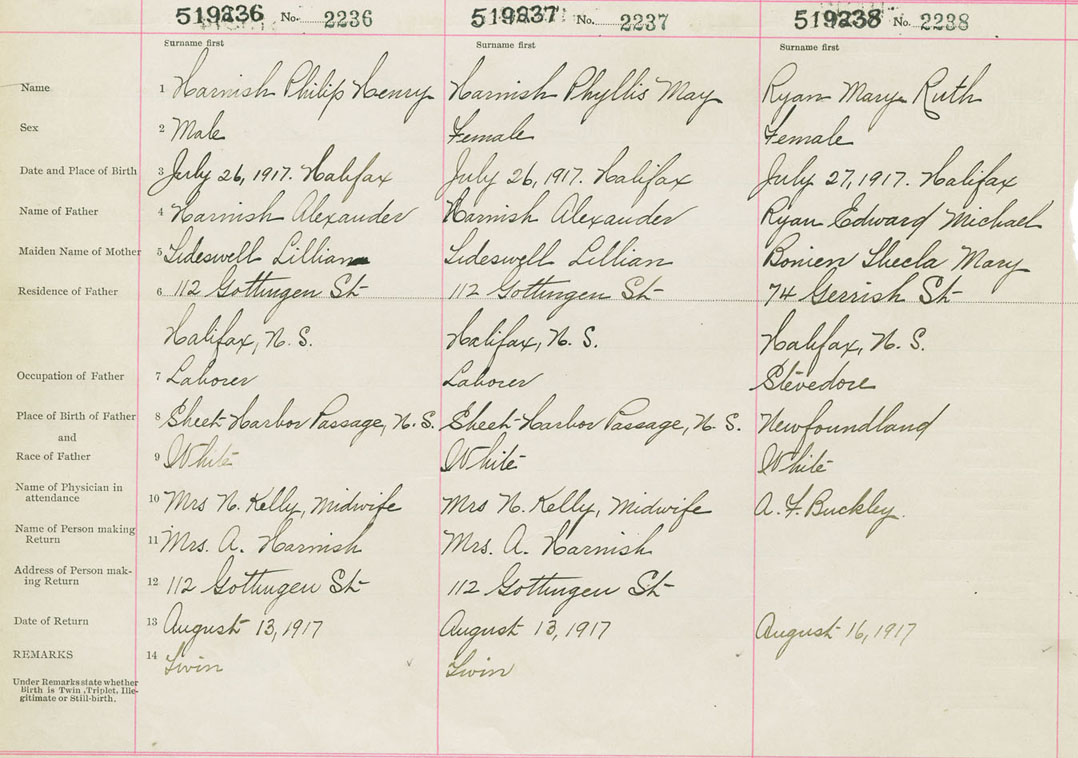 519236 No. 2236 519237 No. 2237 519238 No. 2238
Surname first Surname first Surname first
Name 1 Harnish Philip Henry Harnish Phyllis May Ryan Mary Ruth
Sex 2 Male Female Female
Date and Place of Birth 3 July 26, 1917. Halifax July 26, 1917. Halifax July 27, 1917. Halifax
Name of Father 4 Harnish Alexander Harnish Alexander Ryan Edward Michael
Maiden Name of Mother 5 Sideswell Lillian Sideswell Lillian Bonien Sheela Mary
Residence of Father 6 112 Gottingen St 112 Gottingen St 74 Gerrish St
Halifax, N. S. Halifax, N. S. Halifax, N. S.
Occupation of Father 7 Laborer Laborer Stevedore
Place of Birth of Father 8 Sheet Harbor Passage, N. S. Sheet Harbor Passage, N. S. Newfoundland
and
Race of Father 9 White White White
Name of Physician in
attendance 10 Mrs N. Kelly, Midwife Mrs N. Kelly, Midwife A. F. Buckley.
Name of Person making
Return 11 Mrs. A. Harnish Mrs. A. Harnish
Address of Person mak-
ing Return 12 112 Gottingen St 112 Gottingen St
Date of Return 13 August 13, 1917 August 13, 1917 August 16, 1917
REMARKS 14 Twin Twin
Under Remarks state whether
Birth is Twin, Triplet, Ille-
gitimate or Still-birth.